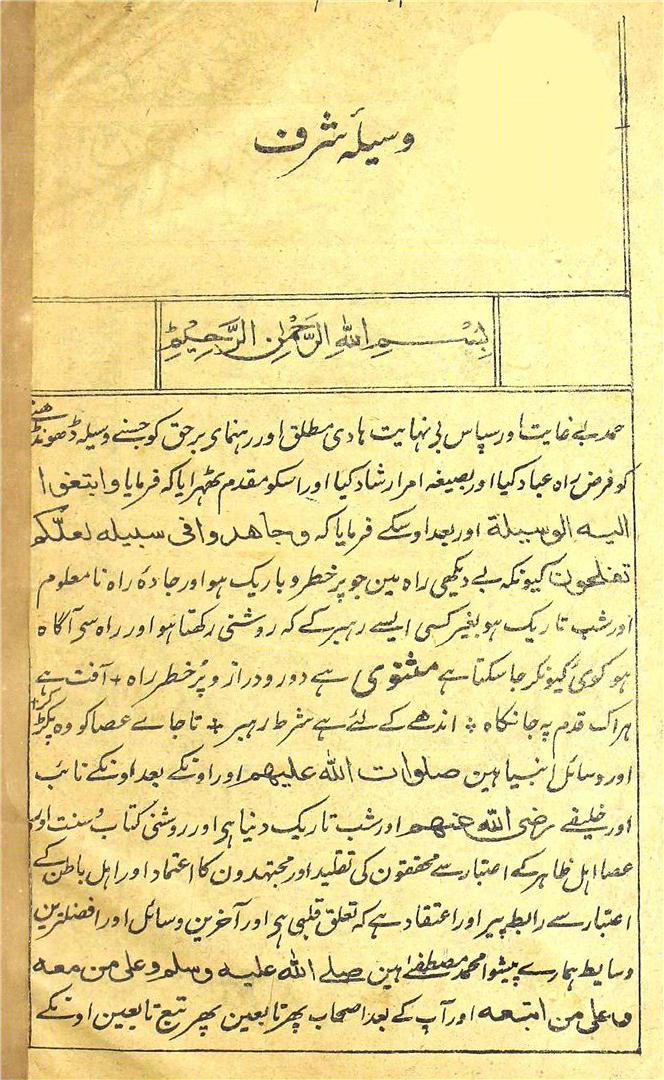 وسیلۂ شرف
بِسْمِ اللّٰهِ الرَّحْمٰنِ الرَّحِيْمِ
حمد بے غایت اور سپاس بی نہایت ہادی مطلق اور رہنمای برحق کو جسنے وسیلہ ڈھونڈھنے
کو فرض راہ عباد کیا اور بصیغہ امر ارشاد کیا اور اسکو مقدم ٹھہرایا کہ فرمایا وابتغوا
الیه الوسیلة اور بعد اوسکے فرمایا کہ وجاهدوا فی سبیله لعلّکم
تفلحون کیونکہ بے دیکھی راہ مین جو پر خطر و باریک ہو اور جادۂ راہ نا معلوم
اور شب تاریک ہو بغیر کسی ایسے رہبر کے کہ روشنی رکھتا ہو اور راہ سی آگاہ
ہو کوئی کیونکر جا سکتا ہے مثنوی ہے دور و دراز و پُر خطر راہ + آفت ہے
ہر اک قدم پہ جانکاہ + اندھے کے لئے ہے شرط رہبر + تا جاے عصا کو وہ پکڑ کر +
اور وسائل انبیا ہین صلوات الله علیهم اور اونکے بعد اونکے نائب
اور خلیفے رضی الله عنهم اور شب تاریک دنیا ہی اور روشنی کتاب و سنت اور
عصا اہل ظاہر کے اعتبار سے محققون کی تقلید اور مجتہدون کا اعتماد اور اہل باطن کے
اعتبار سے رابطہ پیر اور اعتقاد ہے کہ تعلق قلبی ہی اور آخرین وسائل اور افضلترین
وسایط ہمارے پیشوا محمد مصطفےٰ ہین صلے الله علیه وسلم وعلی من معه
وعلی من اتبعه اور آپ کے بعد اصحاب پھر تابعین پھر تبع تابعین اونکے